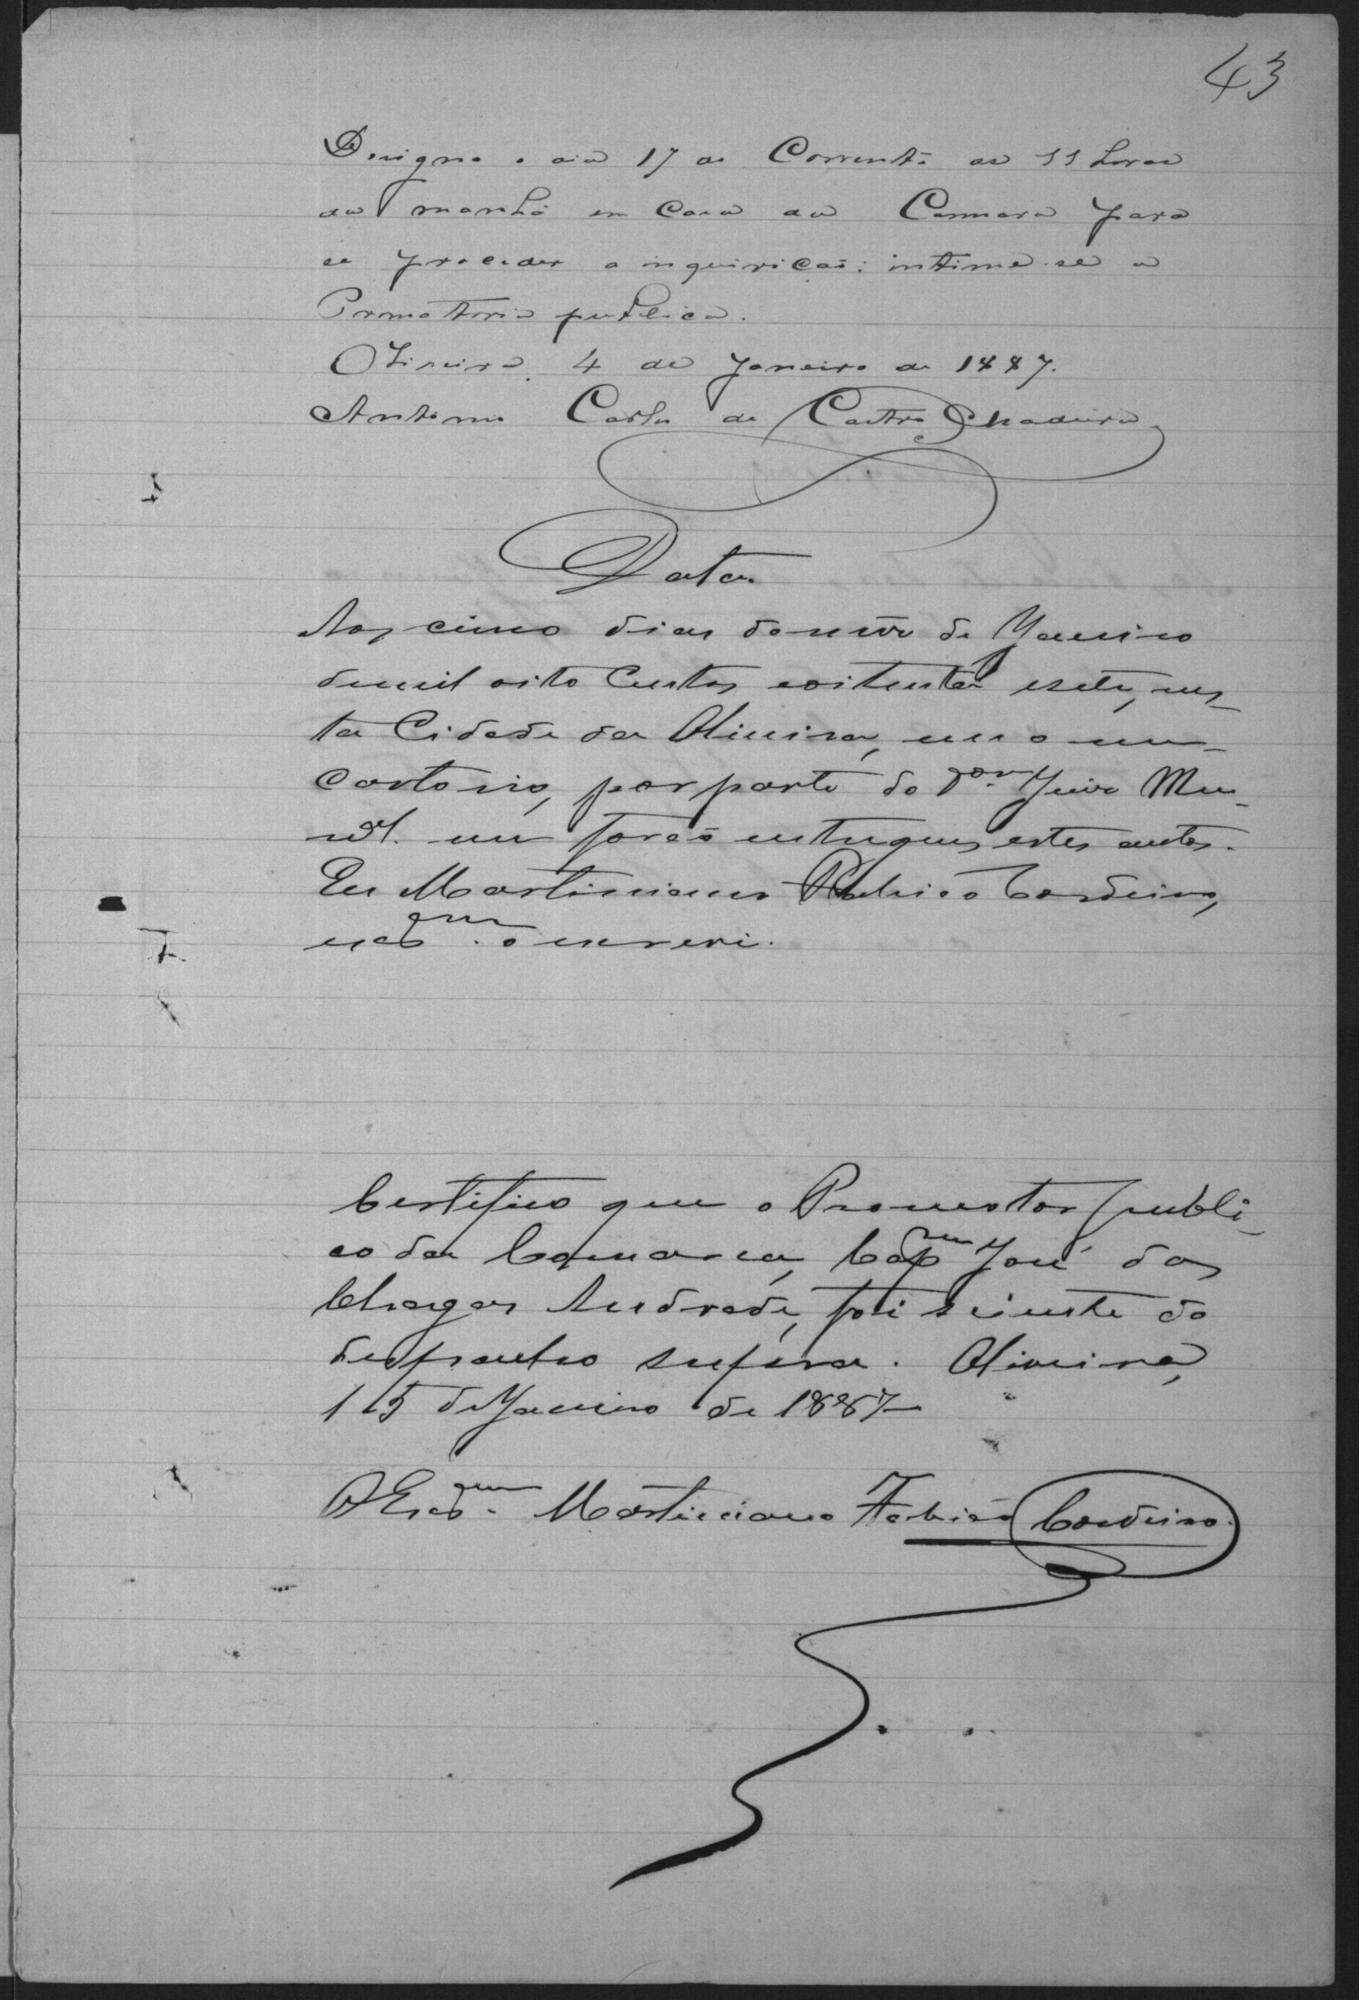 43
Designo o dia 17 do Corrente as 11 horas
da manhã em Casa da Cammara para
se proceder a inquirição: intime-se a
Promotoria publica.
Oliveira, 4 de Janeiro de 1887.
Antonio Carlos de Castro Madeira
Data
Aos cinco dias do mez de Janeiro
de mil oito Centos e oitenta e sete, nes-
ta Cidade da Oliveira, em o meu
Cartorio, por parte do Dor. Juiz Mu-
nal. me forão entregues estes autos.
Eu Martiniano Fabricio Cordeiro,
escam. o escrevi.
Certifico que o Promotor publi-
co da Comarca, Capm José das
Chagas Andrade, foi sciente do
despacho supra. Oliveira,
15 de Janeiro de 1887
O Escam. Martiniano Cordeiro.